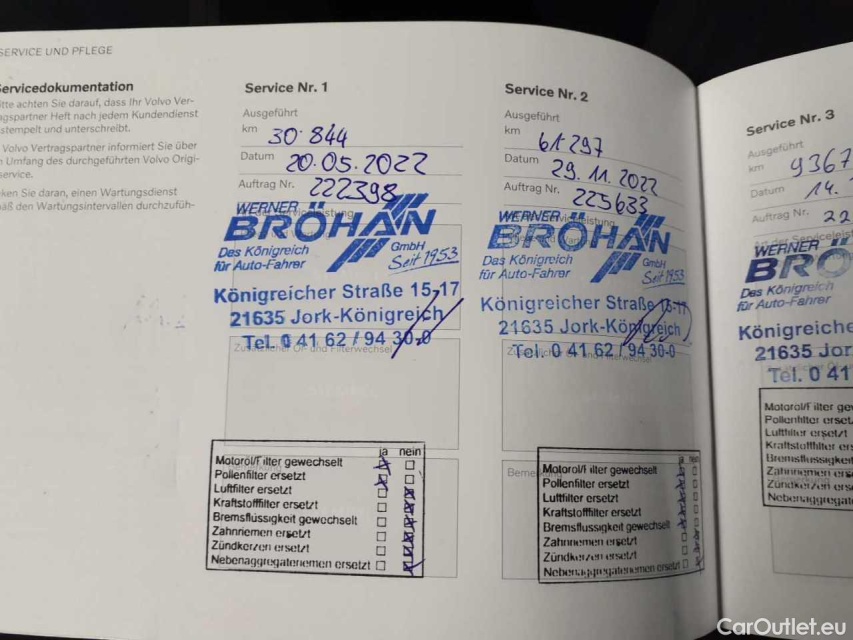 SERVICE UND PFLEGE
ervicedokumentation
itte achten Sie darauf, dass Ihr Volvo Ver-
agspartner Heft nach jedem Kundendienst
stempelt und unterschreibt.
Volvo Vertragspartner informiert Sie über
Umfang des durchgeführten Volvo Origi-
service.
ken Sie daran, einen Wartungsdienst
äß den Wartungsintervallen durchzufüh-
Service Nr. 1
Ausgeführt
km 30.844
Datum 20.05.2022
Auftrag Nr. 222398
WERNER
BRÖHAN
GmbH
Das Königreich
für Auto-Fahrer
Seit 1953
Königreicher Straße 15-17
21635 Jork-Königreich
Tel. 0 41 62 / 94 30-0
ja nein
Motoröl/Filter gewechselt
Pollenfilter ersetzt
Luftfilter ersetzt
Kraftstofffilter ersetzt
Bremsflüssigkeit gewechselt
Zahnriemen ersetzt
Zündkerzen ersetzt
Nebenaggregateriemen ersetzt
Service Nr. 2
Ausgeführt
km 61297
Datum 29.11.2022
Auftrag Nr. 225633
WERNER
BRÖHAN
GmbH
Das Königreich
für Auto-Fahrer
Seit 1953
Königreicher Straße 15-17
21635 Jork-Königreich
Tel. 0 41 62 / 94 30-0
Beme
ja nein
Motoröl/Filter gewechselt
Pollenfilter ersetzt
Luftfilter ersetzt
Kraftstofffilter ersetzt
Bremsflüssigkeit gewechselt
Zahnriemen ersetzt
Zündkerzen ersetzt
Nebenaggregateriemen ersetzt
Service Nr. 3
Ausgeführt
km 9367
Datum 14.
Auftrag Nr. 22
WERNER
BRÖ
Das Königreich
für Auto-Fahrer
Königreiche
21635 Jor
Tel. 0 41
Motoröl/Filter ge
Pollenfilter erset
Luftfilter ersetzt
Kraftstofffilter e
Bremsflüssigkei
Zahnriemen ers
Zündkerzen ers
Nebenaggrega
CarOutlet.eu